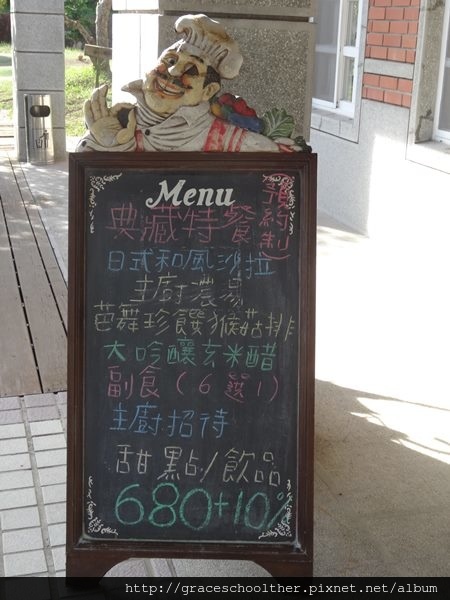 Menu
(預約制)
典藏特餐
日式和風沙拉
主廚濃湯
芭舞珍饌猴菇排
大吟釀玄米醋
副食(6選1)
主廚招待
甜點/飲品
680+10%
http://graceschoolther.pixnet.net/album